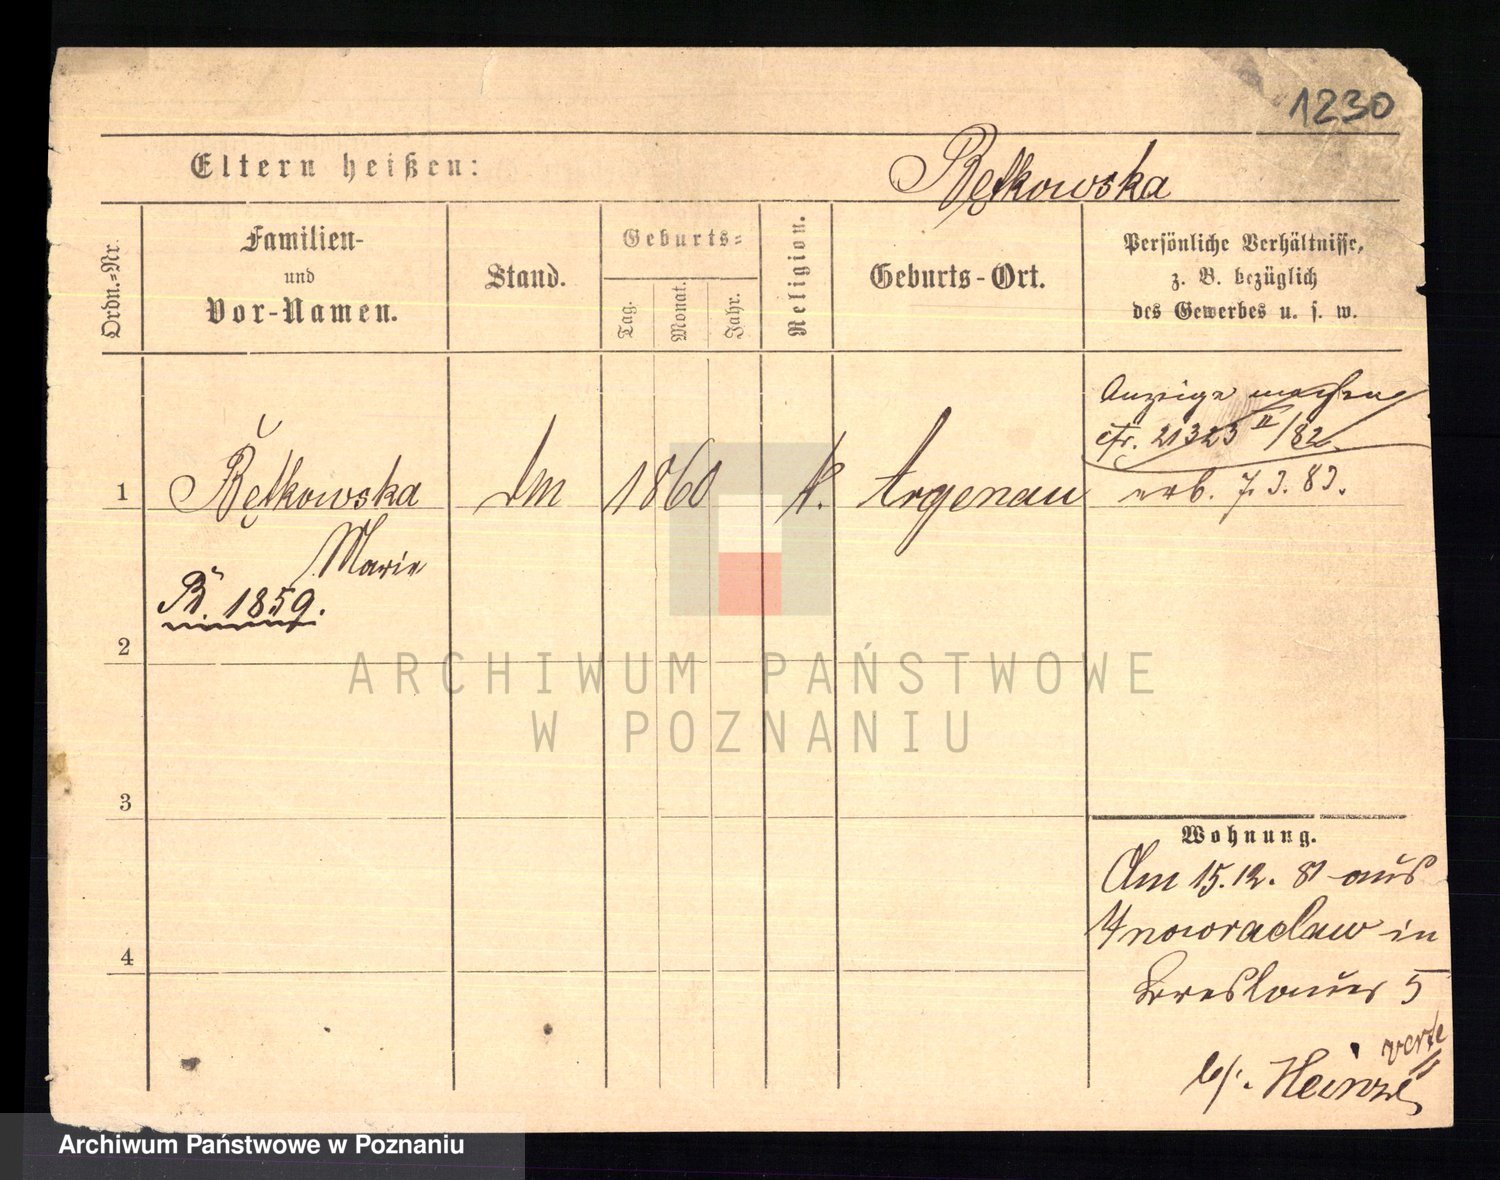 1230
Eltern heißen:
Bętkowska
Ordn.-Nr.
Familien-
und
Vor-Namen.
Stand.
Geburts-
Tag.
Monat.
Jahr.
Religion.
Geburts-Ort.
Persönliche Verhältnisse,
z. B. bezüglich
des Gewerbes u. s. w.
Anzeige machen
cfr. 21323 II/82.
1
Bętkowska
1860
k.
Argenau
7.3.83.
Marie
1859.
2
ARCHIWUM PAŃSTWOWE
W POZNANIU
3
Wohnung.
Am 15.12. 81 aus
Inowraclaw in
Breslauer 5
4
verte
b/. Heinze
Archiwum Państwowe w Poznaniu